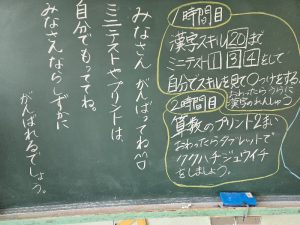 みなさん がんばってね♡
ミニテストやプリントは、
自分でもっててね。
みなさんならしずかに
がんばれるでしょう。
1時間目
漢字スキル20まで
ミニテスト1 3 4をして
自分でスキルを見て○つけをする
おわったらうらに
漢字のれんしゅう
2時間目
算数のプリント2まい
おわったらタブレットで
ククハチジュウイチ
をしましょう。